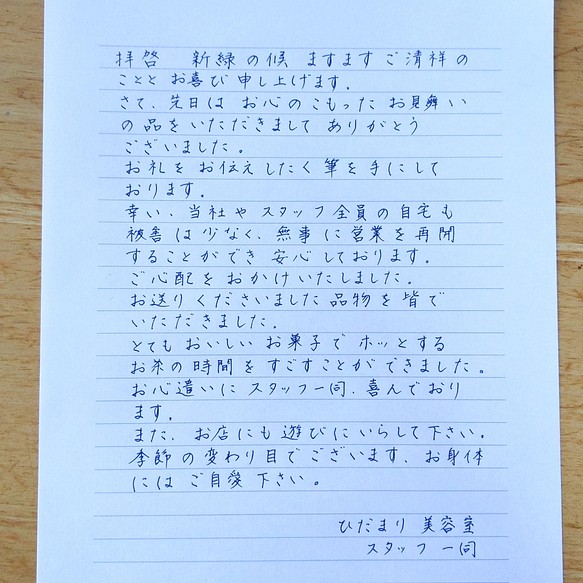 拝啓　新緑の候 ますます ご清祥の
ことと お喜び 申し上げます.
さて、先日は お心のこもった お見舞い
の品を いただきまして ありがとう
ございました。
お礼を お伝えしたく 筆を手にして
おります.
幸い、当社や スタッフ全員の自宅も
被害は少なく、無事に営業を再開
することができ 安心しております.
ご心配を おかけいたしました.
お送りくださいました品物を皆で
いただきました.
とても おいしい お菓子で ホッとする
お茶の時間をすごすことができました。
お心遣いに スタッフ一同、喜んでおり
ます.
また、お店にも 遊びにいらして下さい。
季節の変わり目でございます、お身体
には ご自愛 下さい。
ひだまり 美容室
スタッフ 一同